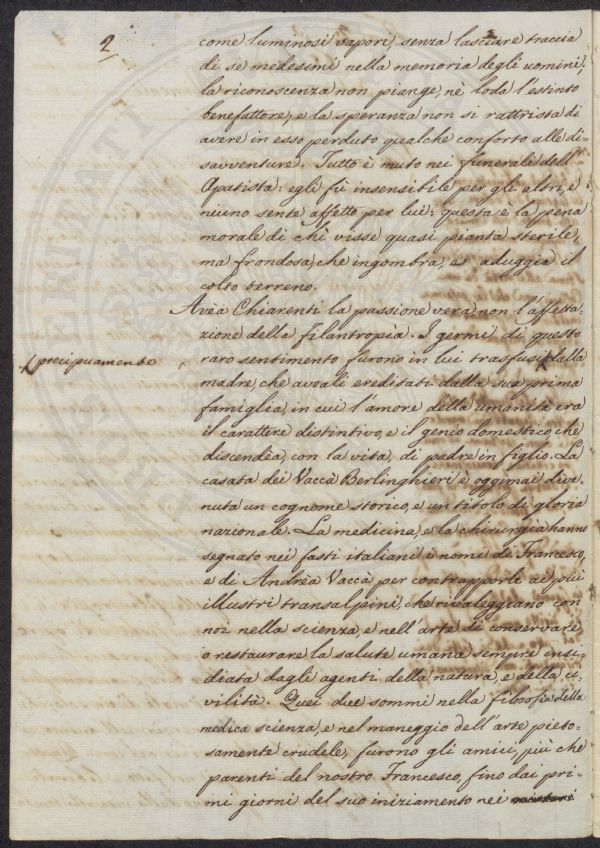 2
come luminosi vapori, senza lasciare traccia
di se medesimi nella memoria degli uomini;
la riconoscenza non piange, nè loda l'estinto
benefattore, e la speranza non si rattrista di
avere in esso perduto qualche conforto alle di-
savventure. Tutto è muto nei funerali dell'
Apatista: egli fù insensibile per gli altri, e
niuno sente affetto per lui: questa è la pena
morale di chi visse quasi pianta sterile,
ma frondosa, che ingombra, e aduggia il
colto terreno.
Avèa Chiarenti la passione vera non l'affetta-
zione della filantropìa. I germi di questo
precipuamente
raro sentimento furono in lui trasfusi dalla
madre, che aveali ereditati dalla sua prima
famiglia, in cui l'amore della umanità era
il carattere distintivo, e il genio domestico, che
discendèa, con la vita, di padre in figlio. La
casata dei Vaccà Berlinghieri è oggimai dive-
nuta un cognome storico, e un titolo di gloria
nazionale. La medicina, e la chirurgia hanno
segnato nei fasti italiani i nomi di Francesco,
e di Andrèa Vaccà per contrapporli ai più
illustri transalpini, che rivaleggiano con
noi nella scienza, e nell'arte di conservare,
o restaurare la salute umana sempre insi-
diata dagli agenti della natura, e della ci-
viltà. Quei due sommi nella filosofia della
medica scienza, e nel maneggio dell'arte pieto-
samente crudele, furono gli amici, più che
parenti del nostro Francesco, fino dai pri-
mi giorni del suo iniziamento nei